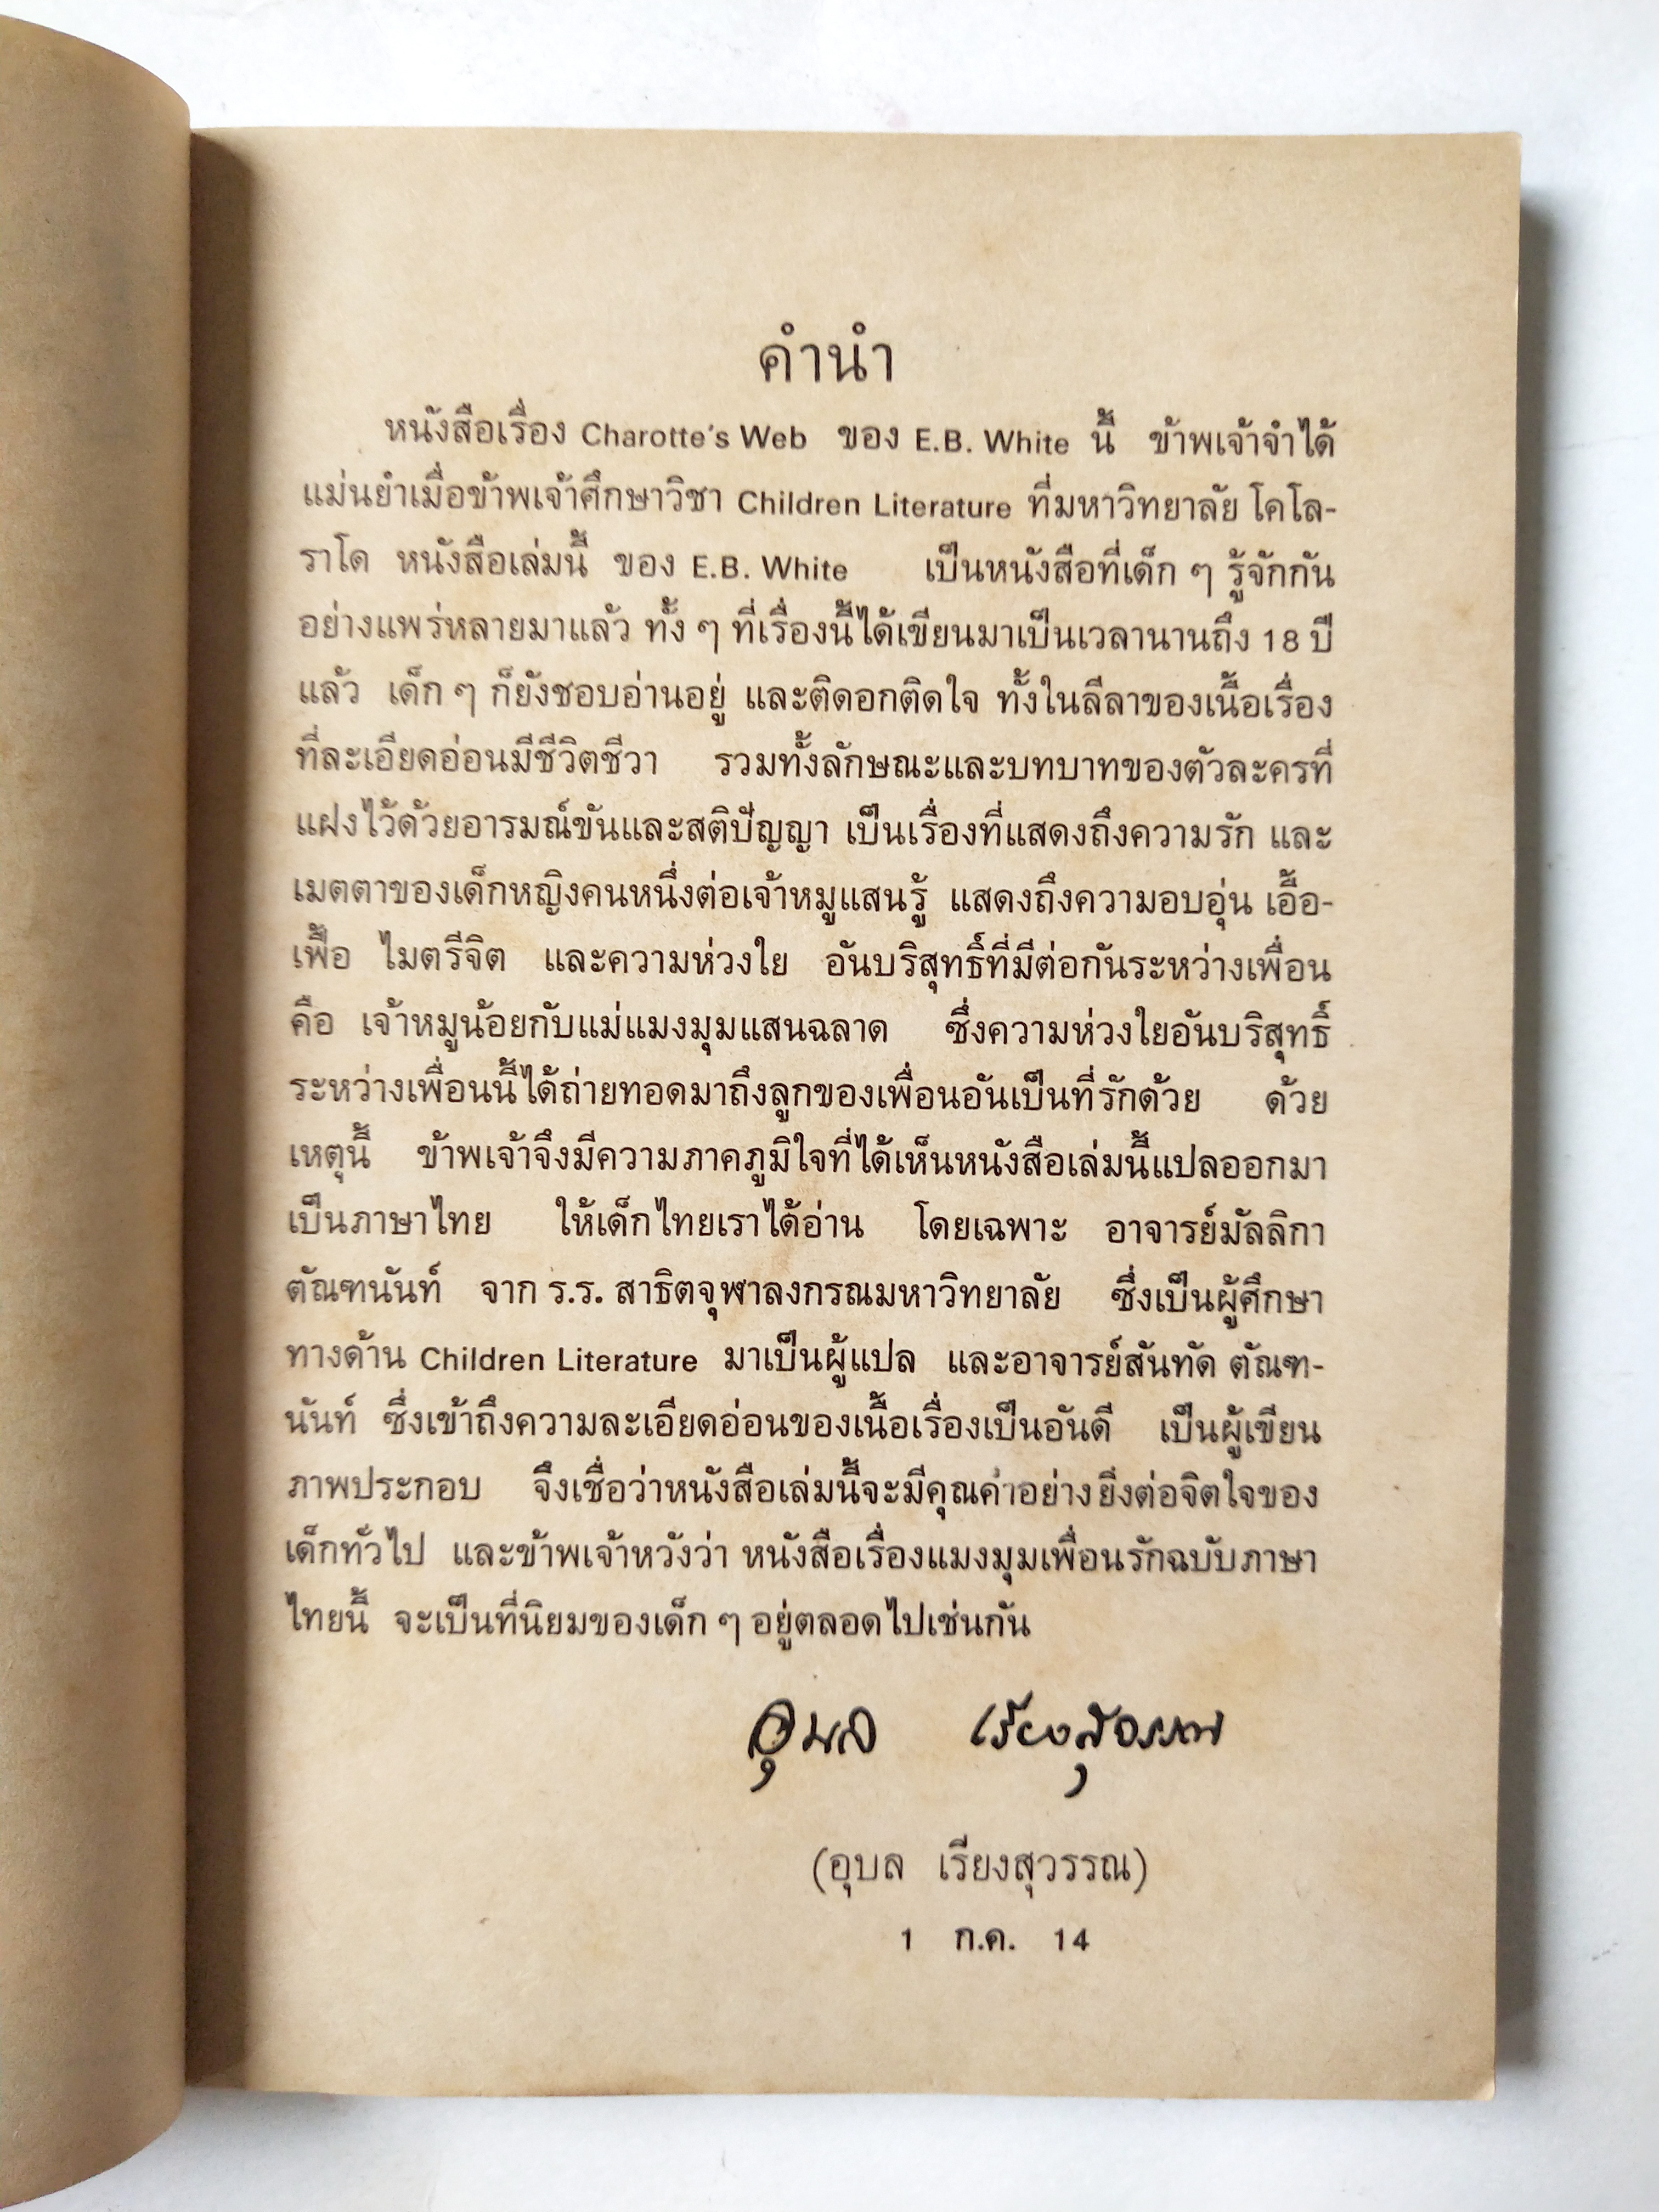 คำนำ
หนังสือเรื่อง Charotte's Web ของ E.B. White นี้ ข้าพเจ้าจำได้
แม่นยำเมื่อข้าพเจ้าศึกษาวิชา Children Literature ที่มหาวิทยาลัย โคโล-
ราโด หนังสือเล่มนี้ ของ E.B. White เป็นหนังสือที่เด็ก ๆ รู้จักกัน
อย่างแพร่หลายมาแล้ว ทั้ง ๆ ที่เรื่องนี้ได้เขียนมาเป็นเวลานานถึง 18 ปี
แล้ว เด็ก ๆ ก็ยังชอบอ่านอยู่ และติดอกติดใจ ทั้งในลีลาของเนื้อเรื่อง
ที่ละเอียดอ่อนมีชีวิตชีวา รวมทั้งลักษณะและบทบาทของตัวละครที่
แฝงไว้ด้วยอารมณ์ขันและสติปัญญา เป็นเรื่องที่แสดงถึงความรัก และ
เมตตาของเด็กหญิงคนหนึ่งต่อเจ้าหมูแสนรู้ แสดงถึงความอบอุ่น เอื้อ-
เฟื้อ ไมตรีจิต และความห่วงใย อันบริสุทธิ์ที่มีต่อกันระหว่างเพื่อน
คือ เจ้าหมูน้อยกับแม่แมงมุมแสนฉลาด ซึ่งความห่วงใยอันบริสุทธิ์
ระหว่างเพื่อนนี้ได้ถ่ายทอดมาถึงลูกของเพื่อนอันเป็นที่รักด้วย ด้วย
เหตุนี้ ข้าพเจ้าจึงมีความภาคภูมิใจที่ได้เห็นหนังสือเล่มนี้แปลออกมา
เป็นภาษาไทย ให้เด็กไทยเราได้อ่าน โดยเฉพาะ อาจารย์มัลลิกา
ตัณฑนันท์ จาก ร.ร. สาธิตจุฬาลงกรณมหาวิทยาลัย ซึ่งเป็นผู้ศึกษา
ทางด้าน Children Literature มาเป็นผู้แปล และอาจารย์สันทัด ตัณฑ-
นันท์ ซึ่งเข้าถึงความละเอียดอ่อนของเนื้อเรื่องเป็นอันดี เป็นผู้เขียน
ภาพประกอบ จึงเชื่อว่าหนังสือเล่มนี้จะมีคุณค่าอย่างยิ่งต่อจิตใจของ
เด็กทั่วไป และข้าพเจ้าหวังว่า หนังสือเรื่องแมงมุมเพื่อนรักฉบับภาษา
ไทยนี้ จะเป็นที่นิยมของเด็ก ๆ อยู่ตลอดไปเช่นกัน
อุบล เรียงสุวรรณ
(อุบล เรียงสุวรรณ)
1 ก.ค. 14